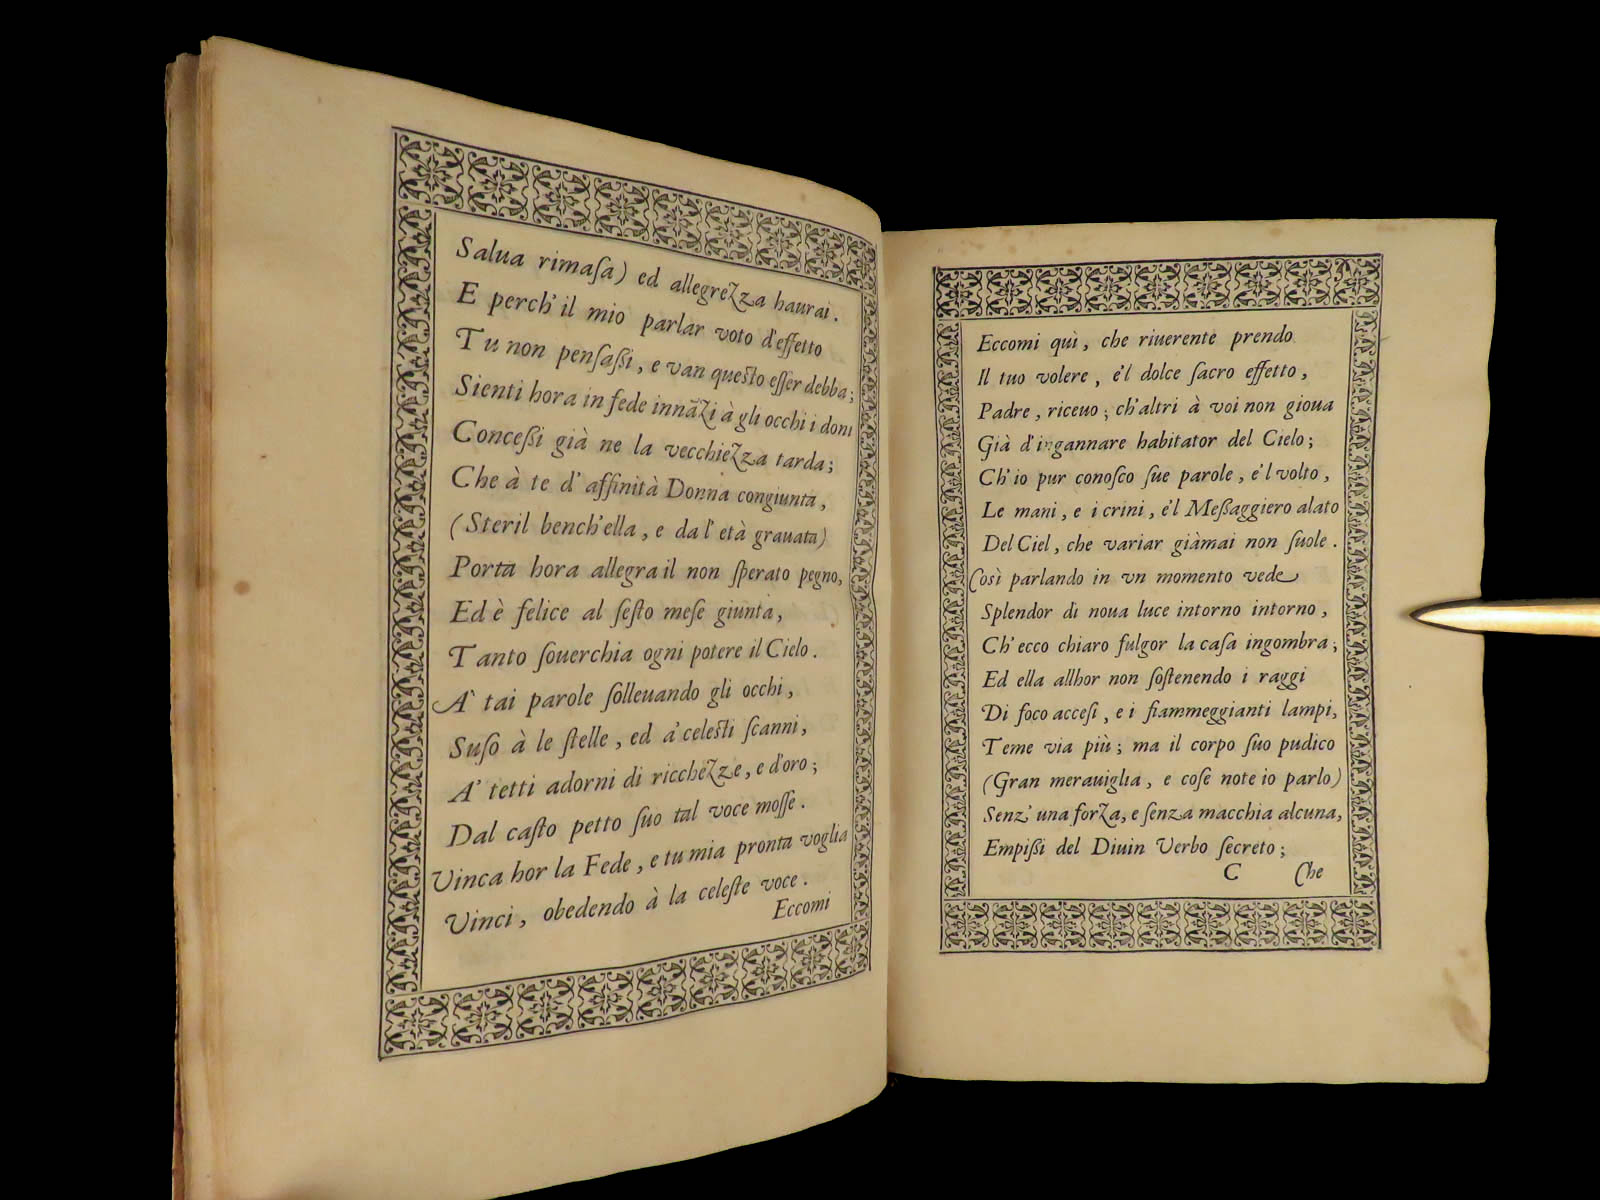 Salua rimaſa) ed allegrezza haurai.
E perch' il mio parlar voto d'effetto
Tu non penſaßi, e van queſto eſſer debba;
Sienti hora in fede innāzi à gli occhi i doni
Conceßi già ne la vecchiezza tarda;
Che à te d' affinità Donna congiunta,
(Steril bench'ella, e da l' età grauata)
Porta hora allegra il non ſperato pegno,
Ed è felice al ſeſto meſe giunta,
Tanto ſouerchia ogni potere il Cielo.
A' tai parole ſolleuando gli occhi,
Suſo à le ſtelle, ed a' celeſti ſcanni,
A' tetti adorni di ricchezze, e d'oro;
Dal caſto petto ſuo tal voce moſſe.
Vinca hor la Fede, e tu mia pronta voglia
Vinci, obedendo à la celeſte voce.
Eccomi
Eccomi quì, che riuerente prendo
Il tuo volere, e'l dolce ſacro effetto,
Padre, riceuo; ch'altri à voi non gioua
Già d'ingannare habitator del Cielo;
Ch' io pur conoſco ſue parole, e'l volto,
Le mani, e i crini, e'l Meßaggiero alato
Del Ciel, che variar giàmai non ſuole.
Così parlando in vn momento vede
Splendor di noua luce intorno intorno,
Ch' ecco chiaro fulgor la caſa ingombra;
Ed ella allhor non ſoſtenendo i raggi
Di foco acceſi, e i fiammeggianti lampi,
Teme via più; ma il corpo ſuo pudico
(Gran merauiglia, e coſe note io parlo)
Senz' una forza, e ſenza macchia alcuna,
Empißi del Diuin Verbo ſecreto;
C Che